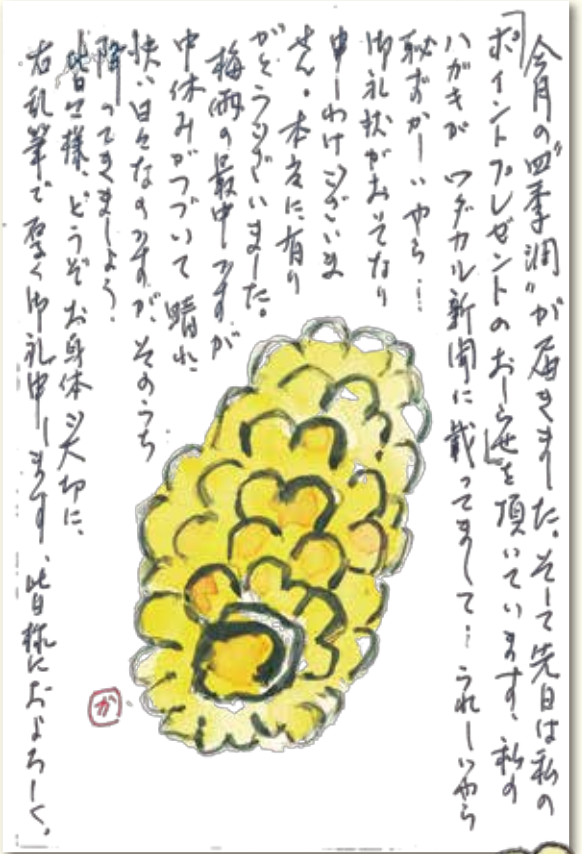 今月の“四季潤”が届きました。そして先日は私の
「ポイントプレゼントのおしらせ」を頂いています、私の
ハガキが ワダカル新聞に載ってまして… うれしいやら
恥ずかしいやら…
御礼状がおそくなり
申しわけございま
せん。本当に有り
がとうございました。
梅雨の最中ですが
中休みがつづいて 晴れ
快い日々なのですが、そのうち
降ってきましょう。
皆々様、どうぞお身体大切に、
右乱筆で厚く御礼申します、皆様におよろしく。
か